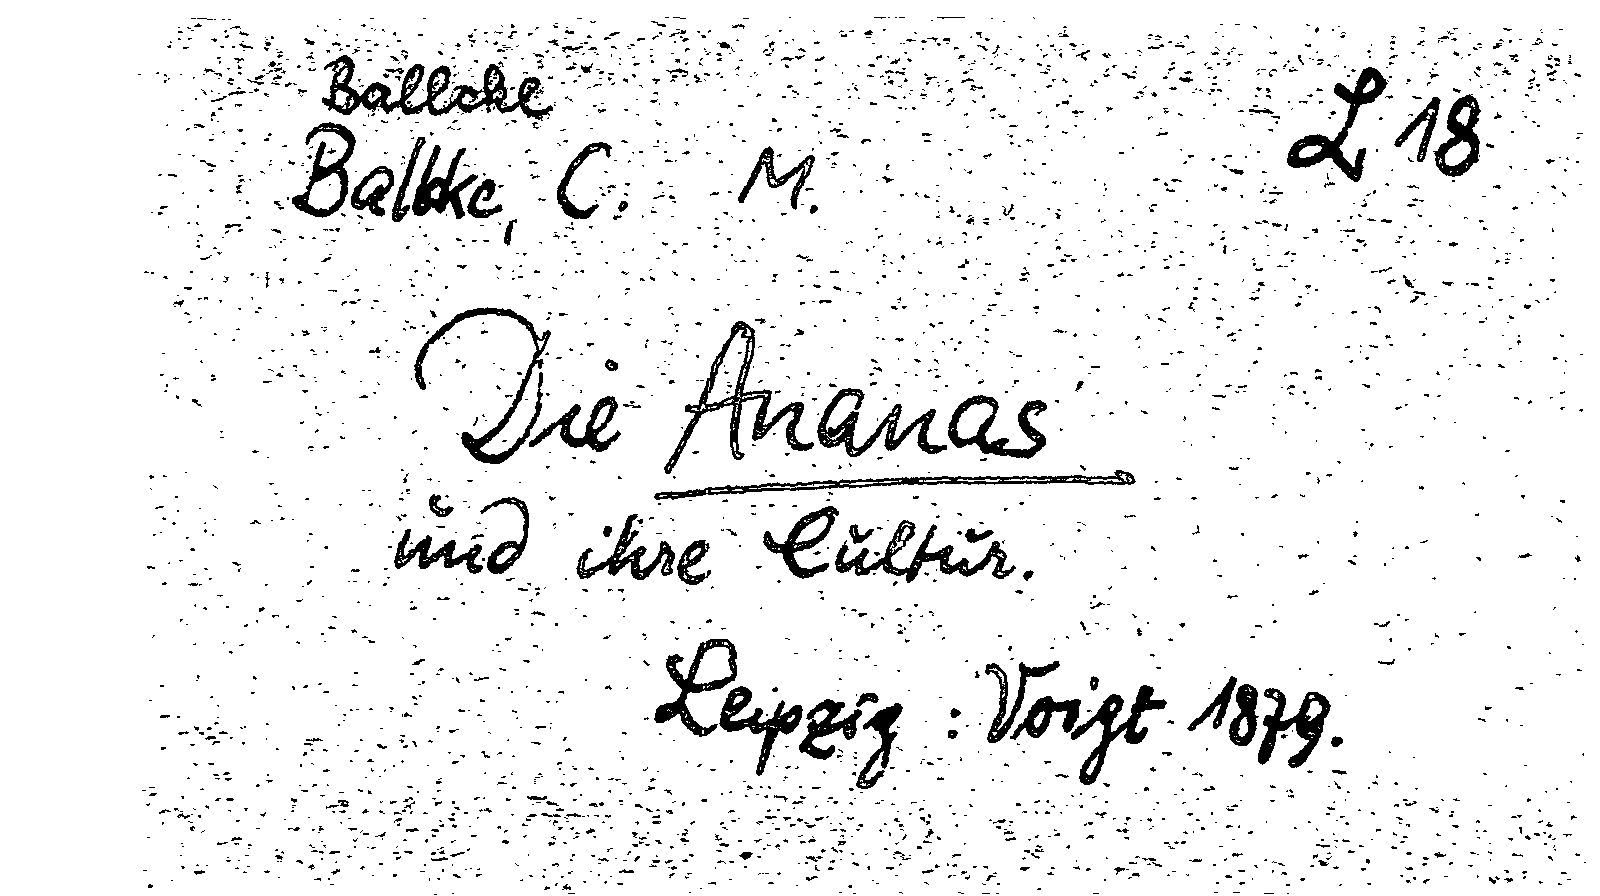 Ballcke
L 18
Balbke, C. M.
Die Ananas
und ihre Cultur.
Leipzig : Voigt 1879.